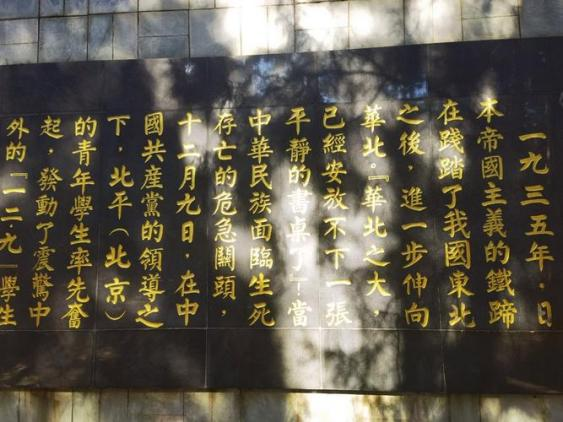 一九三五年，日
本帝國主義的鐵蹄
在踐踏了我國東北
之後，進一步伸向
華北。『華北之大，
已經安放不下一張
平靜的書桌了！』當
中華民族面臨生死
存亡的危急關頭，
十二月九日，在中
國共產黨的領導之
下，北平（北京）
的青年學生率先奮
起，發動了震驚中
外的『一二·九』學生